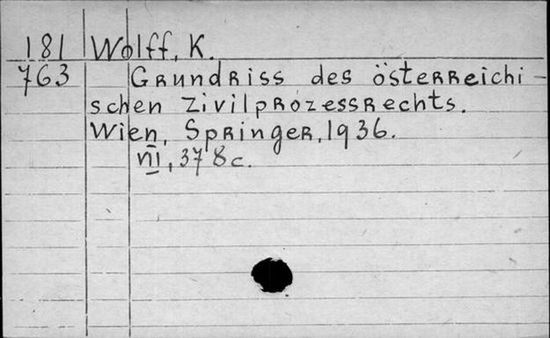 181 Wolff, K.
763 Grundriss des österreichi-
schen Zivilprozessrechts.
Wien, Springer, 1936.
VII, 378 c.